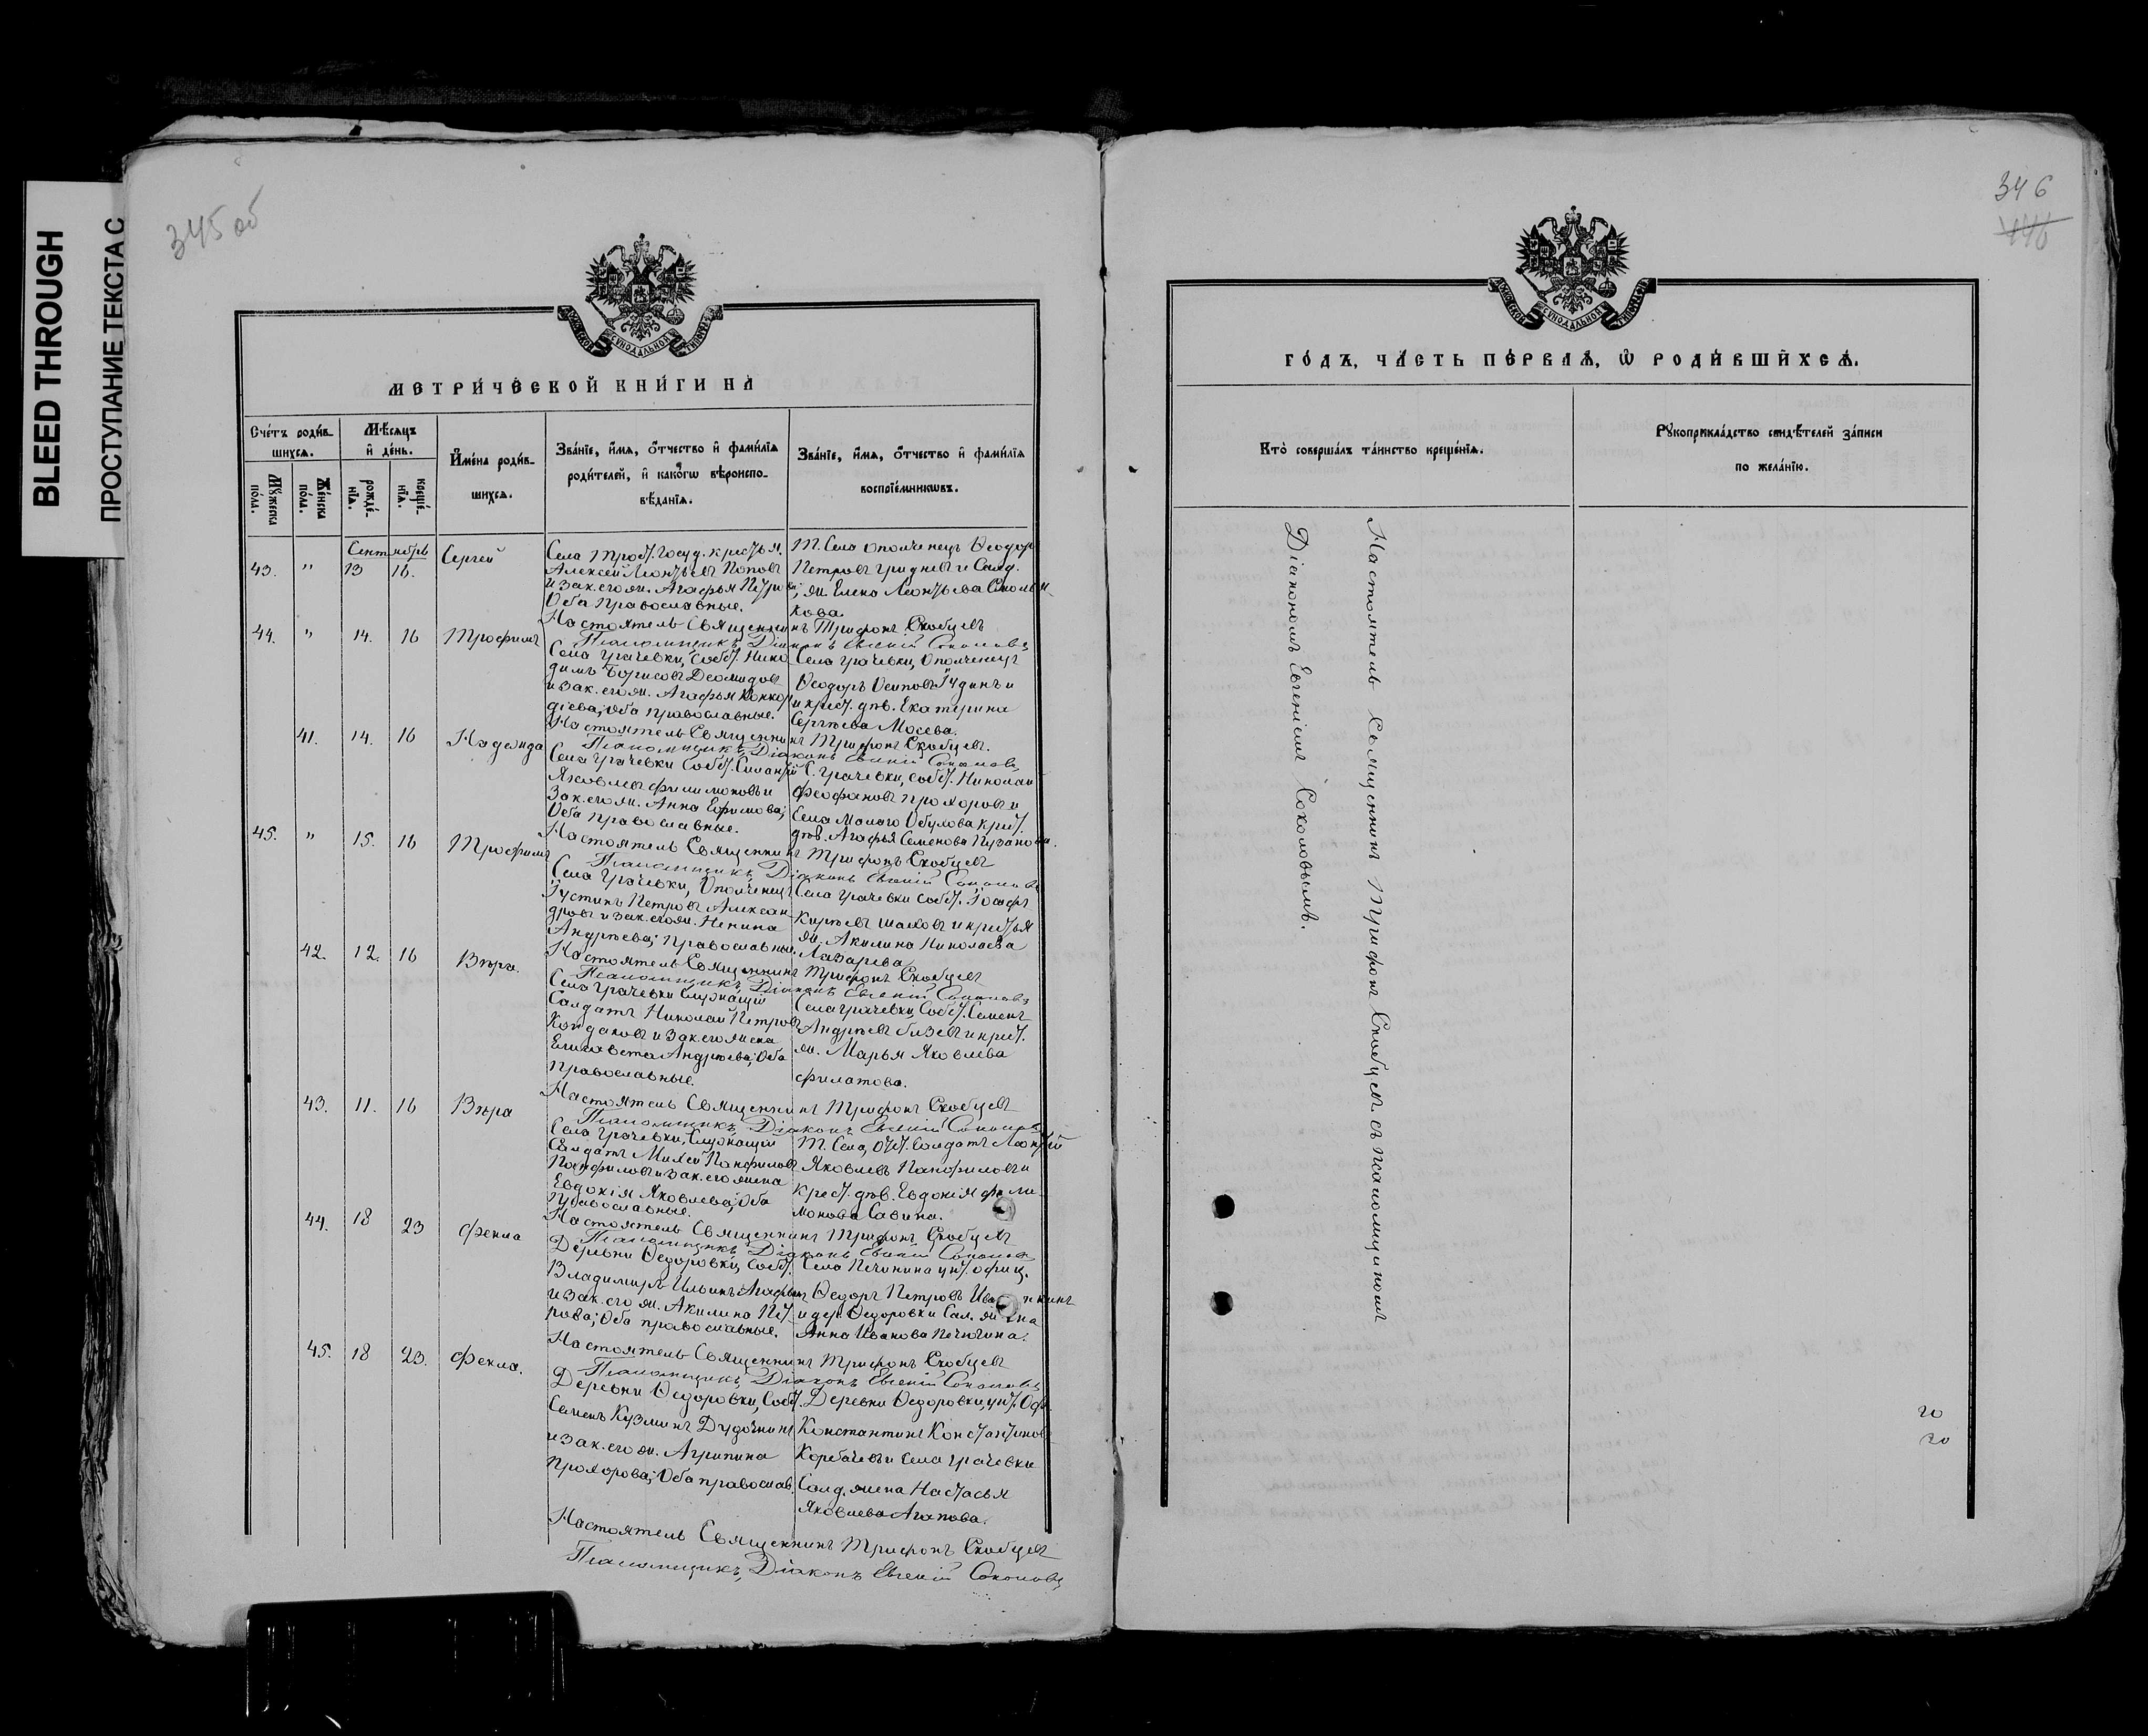 BLEED THROUGH
ПРОСТУПАНИЕ ТЕКСТА С
345 об
МЕТРИ́ЧЕСКОЙ КНИ́ГИ НА
Сче́тъ роди́в-
шихся.
Мꙋ́жеска
по́ла.
Же́нска
по́ла.
Мѣ́сяцъ
и҆ де́нь.
рожде́-
нїѧ.
креще́-
нїѧ.
И҆мена̀ роди́в-
шихся.
Зва́нїе, и҆́мѧ, ѻ҆́тчество и҆ фами́лїѧ
роди́телей, и҆ како́гѡ вѣроиспо-
вѣ́данїѧ.
Зва́нїе, и҆́мѧ, ѻ҆́тчество и҆ фами́лїѧ
воспрїе́мникѡвъ.
Сентябрь
43. " 13 16. Сергей
Села Трост. Госуд. крестьян.
Алексей Леонтьевъ Поповъ
и зак. его ж. Агафья Петрова;
Оба православные.
Т. Села ополченецъ Ѳеодоръ
Петровъ Гридневъ и Солд.
ж. Елена Леонтьева
кова.
Настоятель Священникъ Трифонъ Скобцевъ
Псаломщикъ, Діаконъ Евгеній Соколовъ
44. " 14. 16 Трофимъ
Села Грачевки, Собст. Нико-
димъ Борисовъ Деомидовъ
и зак. его ж. Агафья Конкор-
діева; Оба православные.
Села Грачевки, Ополченецъ
Ѳеодоръ Осиповъ Іудинъ и
крест. дѣв. Екатерина
Сергѣева Мосева.
Настоятель Священникъ Трифонъ Скобцевъ.
Псаломщикъ, Діаконъ Евгеній Соколовъ
41. 14. 16 Надежда
Села Грачевки Собст. Силантій
Яковлевъ Филимоновъ и
Зак. его ж. Анна Ефимова;
Оба православные.
С. Грачевки, собст. Николай
Феофановъ Прохоровъ и
Села Малого Обулова крест.
дѣв. Агафья Семенова Пузанова.
Настоятель Священникъ Трифонъ Скобцевъ
Псаломщикъ, Діаконъ Евгеній Соколовъ
45. " 15. 16 Трофимъ
Села Грачевки, Ополченецъ
Іустинъ Петровъ Алексан-
дровъ и зак. его ж. Ненила
Андрѣева; Православные.
Села Грачевки собст. Іосифъ
Кирѣевъ Шаховъ и крестья
ж. Акилина Николаева
Лазарева
Настоятель Священникъ Трифонъ Скобцевъ
Псаломщикъ, Діаконъ Евгеній Соколовъ
42. 12. 16 Вѣра.
Села Грачевки Служащій
Солдатъ Николай Петровъ
Кондаковъ и зак. его жена
Елисавета Андрѣева; Оба
Православные.
Села Грачевки, Собст. Семенъ
Андрѣевъ Бизевъ и крест.
ж. Марья Яковлева
Филатова.
Настоятель Священникъ Трифонъ Скобцевъ
Псаломщикъ, Діаконъ Евгеній Соколовъ
43. 11. 16 Вѣра
Села Грачевки, Служащій
Солдатъ Михей Панфиловъ
Панфиловъ и зак. его жена
Евдокія Яковлева; Оба
Православные.
Т. Села, Отст. Солдатъ Леонтій
Яковлевъ Панфиловъ и
Крест. дѣв. Евдокія Фили-
монова Савина.
Настоятель Священникъ Трифонъ Скобцевъ
Псаломщикъ, Діаконъ Евгеній Соколовъ
44. 18 23 Фекла
Деревни Ѳедоровки, Собст.
Владимиръ Ильинъ Агафонъ
и зак. его ж. Акилина Пет-
рова; Оба православные.
Села Печинина унт. офиц.
Ѳедоръ Петровъ
и дер. Ѳедоровки Сол. жена
Анна Иванова Печигина.
Настоятель Священникъ Трифонъ Скобцевъ
Псаломщикъ, Діаконъ Евгеній Соколовъ
45. 18 23. Фекла.
Деревни Ѳедоровки, Собст.
Семенъ Кузминъ Дудочкинъ
и зак. его ж. Агрипина
Прохорова; Оба православ.
Деревни Ѳедоровки, унт. Оф.
Константинъ Константиновъ
Корбачевъ и Села Грачевки
Солд. жена Настасья
Яковлева Агапова.
Настоятель Священникъ Трифонъ Скобцевъ
Псаломщикъ, Діаконъ Евгеній Соколовъ
346
146
ГО́ДЪ, ЧА́СТЬ ПЕ́РВАѦ, Ѡ҆ РОДИ́ВШИХСѦ.
Кто̀ соверша́лъ та́инство креще́нїѧ.
Рꙋкоприкла́дство свидѣ́телей за́писи
по жела́нїю.
Настоятель Священникъ Трифонъ Скобцевъ съ псаломщикомъ
Діакономъ Евгеніемъ Соколовымъ.
20
20